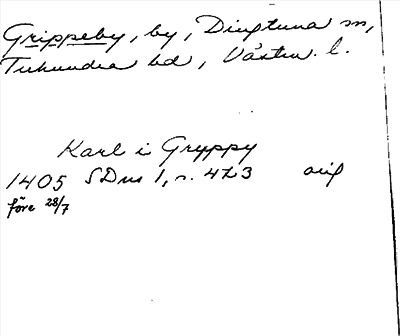 Grippeby, by, Dingtuna sn,
Tuhundra hd, Västm. l.
Karl i Gryppy
1405 SDns 1, s. 423 avif
före 28/7